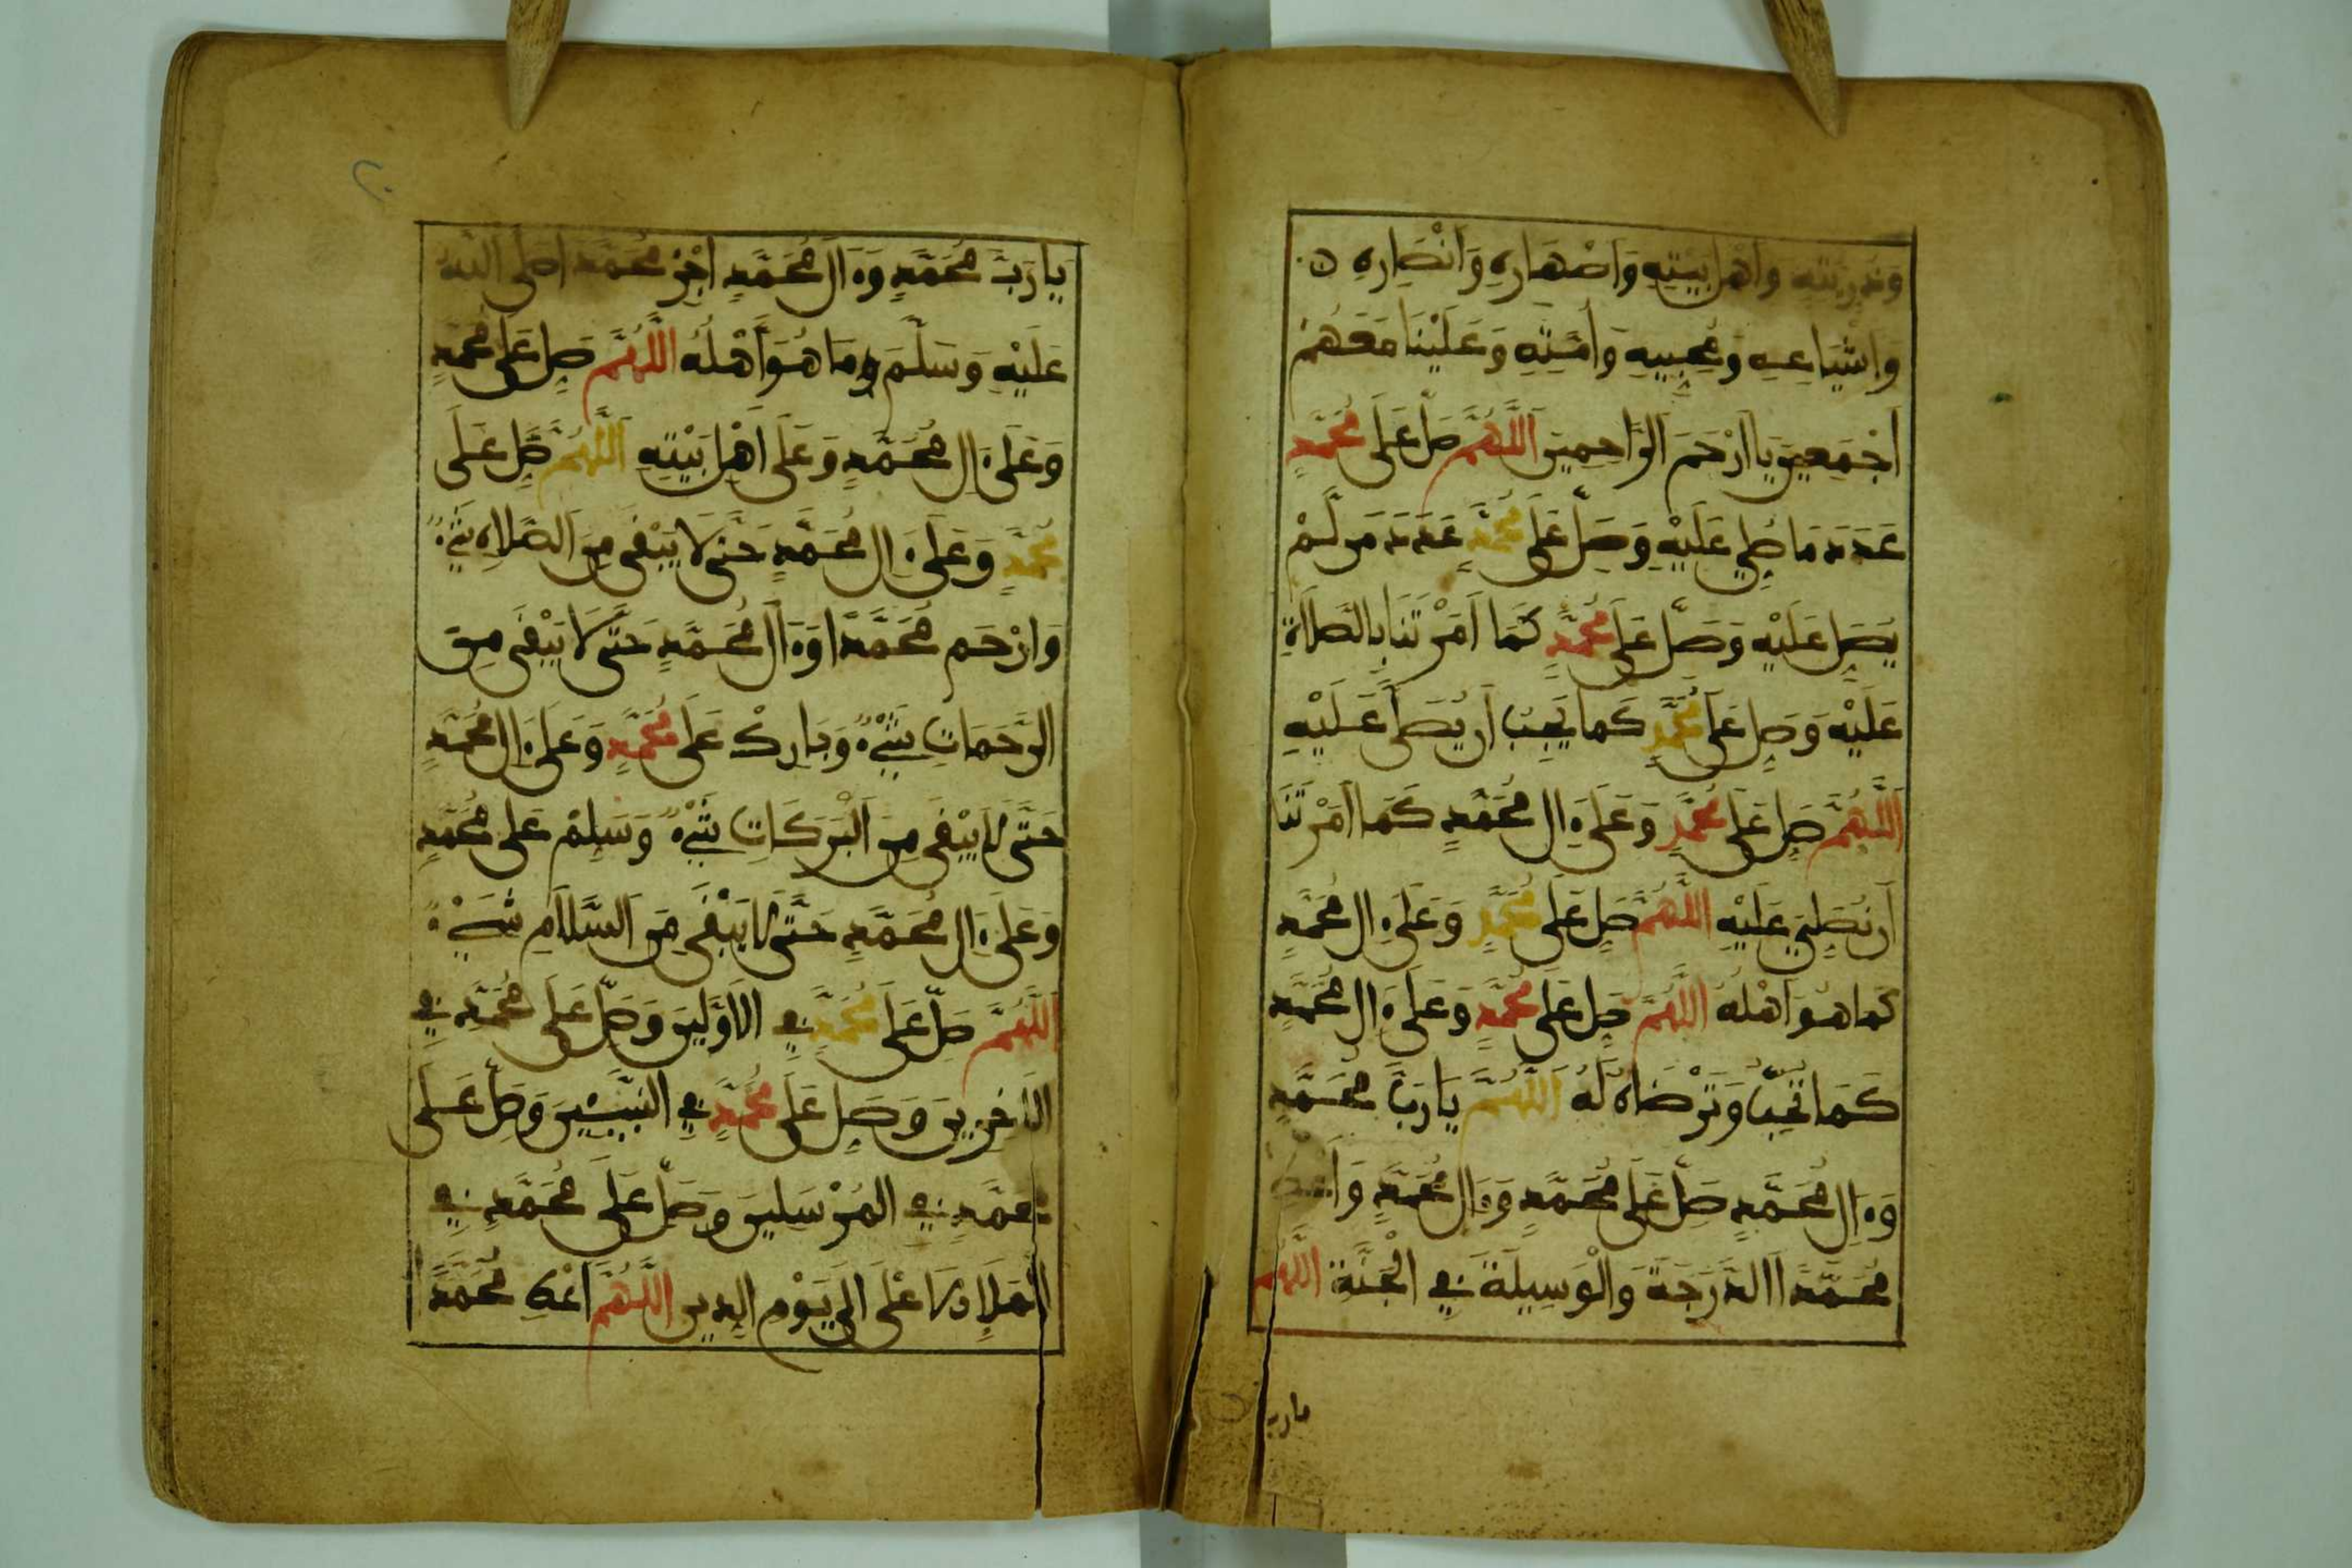 وَذُرِّيَتِهِ وَأَهْلِ بَيْتِهِ وَأَصْهَارِهِ وَأَنْصَارِهِ
وَأَشْيَاعِهِ وَمُحِبِّيهِ وَأُمَّتِهِ وَعَلَيْنَا مَعَهُمْ
أَجْمَعِينَ يَا أَرْحَمَ الرَّاحِمِينَ اَللَّهُمَّ صَلِّ عَلَى مُحَمَّدٍ
عَدَدَ مَا صُلِّيَ عَلَيْهِ وَصَلِّ عَلَى مُحَمَّدٍ عَدَدَ مَن لَّمْ
يُصَلِّ عَلَيْهِ وَصَلِّ عَلَى مُحَمَّدٍ كَمَا أَمَرْتَنَا بِالصَّلَاةِ
عَلَيْهِ وَصَلِّ عَلَى مُحَمَّدٍ كَمَا يَجِبُ أَن يُصَلَّى عَلَيْهِ
اَللَّهُمَّ صَلِّ عَلَى مُحَمَّدٍ وَعَلَى ءَالِ مُحَمَّدٍ كَمَا أَمَرْتَنَا
أَن نُصَلِّيَ عَلَيْهِ اللَّهُمَّ صَلِّ عَلَى مُحَمَّدٍ وَعَلَى ءَالِ مُحَمَّدٍ
كَمَا هُوَ أَهْلُهُ اللَّهُمَّ صَلِّ عَلَى مُحَمَّدٍ وَعَلَى ءَالِ مُحَمَّدٍ
كَمَا تُحِبُّ وَتَرْضَاهُ لَهُ اَللَّهُمَّ يَا رَبَّ مُحَمَّدٍ
وَءَالِ مُحَمَّدٍ صَلِّ عَلَى مُحَمَّدٍ وَءَالِ مُحَمَّدٍ
مُحَمَّداً الدَّرَجَةَ وَالْوَسِيلَةَ فِي الْجَنَّةِ اللَّهُمَّ
يارب
يَا رَبَّ مُحَمَّدٍ وَءَالِ مُحَمَّدٍ اجْزِ مُحَمَّداً صَلَّى اللَّهُ
عَلَيْهِ وَسَلَّمَ مَا هُوَ أَهْلُهُ اللَّهُمَّ صَلِّ عَلَى مُحَمَّدٍ
وَعَلَى ءَالِ مُحَمَّدٍ وَعَلَى أَهْلِ بَيْتِهِ اَللَّهُمَّ صَلِّ عَلَى
مُحَمَّدٍ وَعَلَى ءَالِ مُحَمَّدٍ حَتَّى لَا يَبْقَى مِنَ الصَّلَاةِ شَيْءٌ
وَارْحَم مُحَمَّداً وَءَالَ مُحَمَّدٍ حَتَّى لَا يَبْقَى مِنَ
الرَّحَمَاتِ شَيْءٌ وَبَارِكْ عَلَى مُحَمَّدٍ وَعَلَى ءَالِ مُحَمَّدٍ
حَتَّى لَا يَبْقَى مِنَ الْبَرَكَاتِ شَيْءٌ وَسَلِّمْ عَلَى مُحَمَّدٍ
وَعَلَى ءَالِ مُحَمَّدٍ حَتَّى لَا يَبْقَى مِنَ السَّلَامِ شَيْءٌ
اَللَّهُمَّ صَلِّ عَلَى مُحَمَّدٍ فِي الأَوَّلِينَ وَصَلِّ عَلَى مُحَمَّدٍ فِي
الآخِرِينَ وَصَلِّ عَلَى مُحَمَّدٍ فِي النَّبِيِّينَ وَصَلِّ عَلَى
مُحَمَّدٍ فِي المُرْسَلِينَ وَصَلِّ عَلَى مُحَمَّدٍ فِي
الْمَلَإِ الأَعْلَى إِلَى يَوْمِ الدِّينِ اللَّهُمَّ أَعْطِ مُحَمَّداً